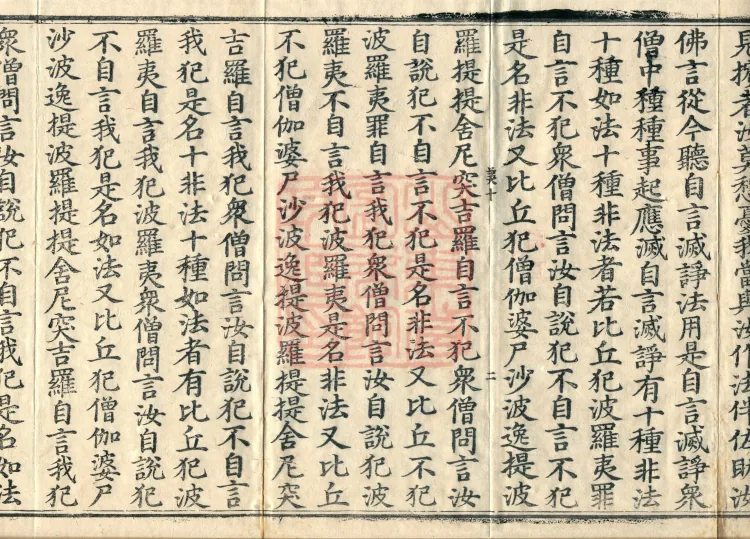 佛言從今聽自言滅諍法用是自言滅諍衆
僧中種種事起應滅自言滅諍有十種非法
十種如法十種非法者若比丘犯波羅夷罪
自言不犯衆僧問言汝自說犯不自言不犯
是名非法又比丘犯僧伽婆尸沙波逸提波
十 二
羅提提舍尼突吉羅自言不犯衆僧問言汝
自說犯不自言不犯是名非法又比丘不犯
波羅夷罪自言我犯衆僧問言汝自說犯波
羅夷不自言我犯波羅夷是名非法又比丘
不犯僧伽婆尸沙波逸提波羅提提舍尼突
吉羅自言我犯衆僧問言汝自說犯不自言
我犯是名十非法十種如法者有比丘犯波
羅夷自言我犯波羅夷衆僧問言汝自說犯
不自言我犯是名如法又比丘犯僧伽婆尸
沙波逸提波羅提提舍尼突吉羅自言我犯
衆僧問言汝自說犯不自言我犯是名如法